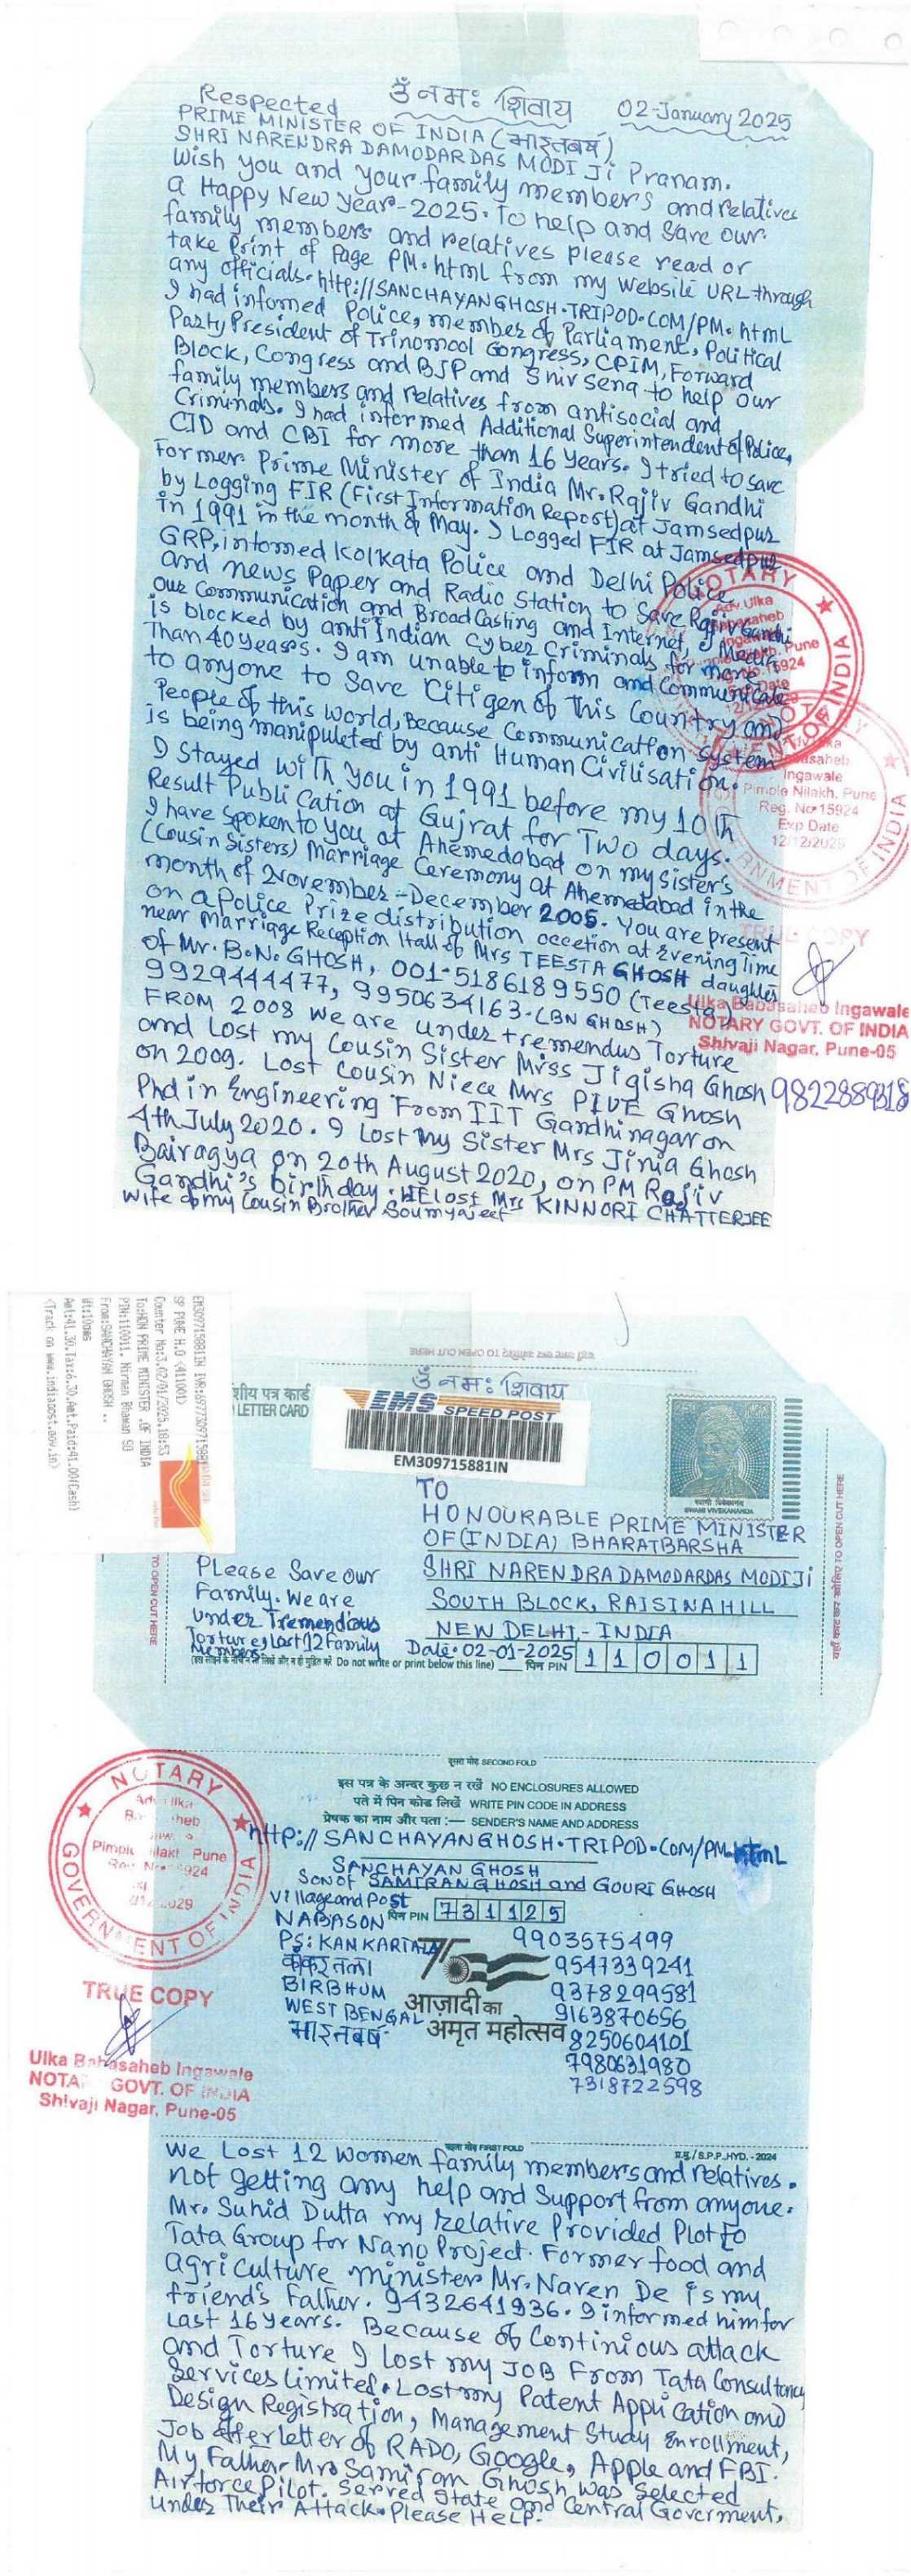 ॐ नमः शिवाय
02-January 2025
Respected
PRIME MINISTER OF INDIA (भारतबर्ष)
SHRI NARENDRA DAMODARDAS MODI Ji Pranam.
Wish you and your family members and relatives
a Happy New year-2025. To help and save our
family members and relatives please read or
take Print of Page PM.html from my website URL through
any officials. http://SANCHAYANGHOSH.TRIPOD.COM/PM.html
I had informed Police, member of Parliament, Political
Party President of Trinomool Congress, CPIM, Forward
Block, Congress and BJP and Shiv Sena to help our
family members and relatives from antisocial and
Criminals. I had informed Additional Superintendent of Police,
CID and CBI for more than 16 years. I tried to save
Former Prime Minister of India Mr. Rajiv Gandhi
by Logging FIR (First Information Report) at Jamsedpur
in 1991 in the month of May. I Logged FIR at Jamsedpur
GRP, informed Kolkata Police and Delhi Police
and news Paper and Radio Station to Save Rajiv Gandhi
Our Communication and BroadCasting and Internet, Media
is blocked by anti Indian Cyber Criminals for more
Than 40 years. I am unable to inform and Communicate
to anyone to Save Citigen of This Country and
People of this world, Because Communication system
is being manipuleted by anti Human Civilisation.
I Stayed with you in 1991 before my 10th
Result Publication at Gujrat for Two days.
I have spoken to you at Ahemedabad on my sister's
(Cousin Sisters) Marriage Ceremony at Ahemedabad in the
month of November - December 2005. You are present
on a Police Prize distribution occetion at Evening Time
near Marriage Reception Hall of Mrs TEESTA GHOSH daughter
of Mr. B.N. GHOSH, 001-5186189550 (Teesta)
9929444477, 9950634163-(BN GHOSH)
FROM 2008 we are under tremendus Torture
and Lost my Cousin Sister Miss Jigisha Ghosh
on 2009. Lost Cousin Niece Mrs PIUE Ghosh
Phd in Engineering From IIT Gandhinagar on
4th July 2020. I Lost My Sister Mrs Jinia Ghosh
Bairagya on 20th August 2020, on PM Rajiv
Gandhi's birthday. WE lost Mrs KINNORI CHATTERJEE
wife of my Cousin Brother Soumyajeet
NOTARY
Adv. Ulka
Babasaheb
Ingawale
Pimple Nilakh, Pune
Reg. No. 15924
Exp Date
12/12/2029
GOVERNMENT OF INDIA
TRUE COPY
Ulka Babasaheb Ingawale
NOTARY GOVT. OF INDIA
Shivaji Nagar, Pune-05
9822889318
EM309715881IN IVR:6977309715881
SP PUNE H.O (411001)
Counter No:3,02/01/2025,18:53
To:HON PRIME MINISTER .OF INDIA
PIN:110011, Nirman Bhawan SO
From:SANCHAYAN GHOSH ..
Wt:10gms
Amt:41.30,Tax:6.30,Amt.Paid:41.00(Cash)
<Track on www.indiapost.gov.in>
TO OPEN CUT HERE
ॐ नमः शिवाय
शीय पत्र कार्ड
LETTER CARD
EMS SPEED POST
EM309715881IN
स्वामी विवेकानन्द
SWAMI VIVEKANANDA
TO
HONOURABLE PRIME MINISTER
OF (INDIA) BHARATBARSHA
SHRI NARENDRA DAMODARDAS MODIJi
SOUTH BLOCK, RAISINA HILL
NEW DELHI - INDIA
Date: 02-01-2025
Please Save our
Family. We are
under Tremendous
Torture, Lost 12 Family
Members
Do not write or print below this line) पिन PIN 110011
TO OPEN CUT HERE
यहाँ काट कर खोलिए TO OPEN CUT HERE
दूसरा मोड़ SECOND FOLD
इस पत्र के अन्दर कुछ न रखें NO ENCLOSURES ALLOWED
पते में पिन कोड लिखें WRITE PIN CODE IN ADDRESS
प्रेषक का नाम और पता :— SENDER'S NAME AND ADDRESS
http://SANCHAYANGHOSH.TRIPOD.COM/PM.html
SANCHAYAN GHOSH
Son of SAMIRAN GHOSH and GOURI GHOSH
Village and Post
NABASON पिन PIN 731125
PS: KANKARTALA
BIRBHUM
WEST BENGAL
भारतबर्ष
9903575499
9547339241
9378299581
9163870656
8250604101
7980631980
7318722598
आज़ादी का
अमृत महोत्सव
NOTARY
Pimple Nilakh, Pune
GOVERNMENT OF INDIA
TRUE COPY
Ulka Babasaheb Ingawale
NOTARY GOVT. OF INDIA
Shivaji Nagar, Pune-05
पहला मोड़ FIRST FOLD
प्र.मु./S.P.P.,HYD. - 2024
We Lost 12 women family members and relatives.
not getting any help and Support from anyone.
Mr. Suhid Dutta my relative Provided Plot to
Tata Group for Nano Project. Former food and
agriculture minister Mr. Naren De is my
friend's Father. 9432641936. I informed him for
Last 16 years. Because of Continious attack
and Torture I lost my JOB From Tata Consultancy
Services Limited. Lost my Patent Application and
Design Registration, Management Study Enrollment,
Job offer letter of RADO, Google, Apple and FBI.
My Father Mr. Samiran Ghosh was selected
Airforce Pilot. Served State and Central Goverment,
under Their Attack. Please Help.